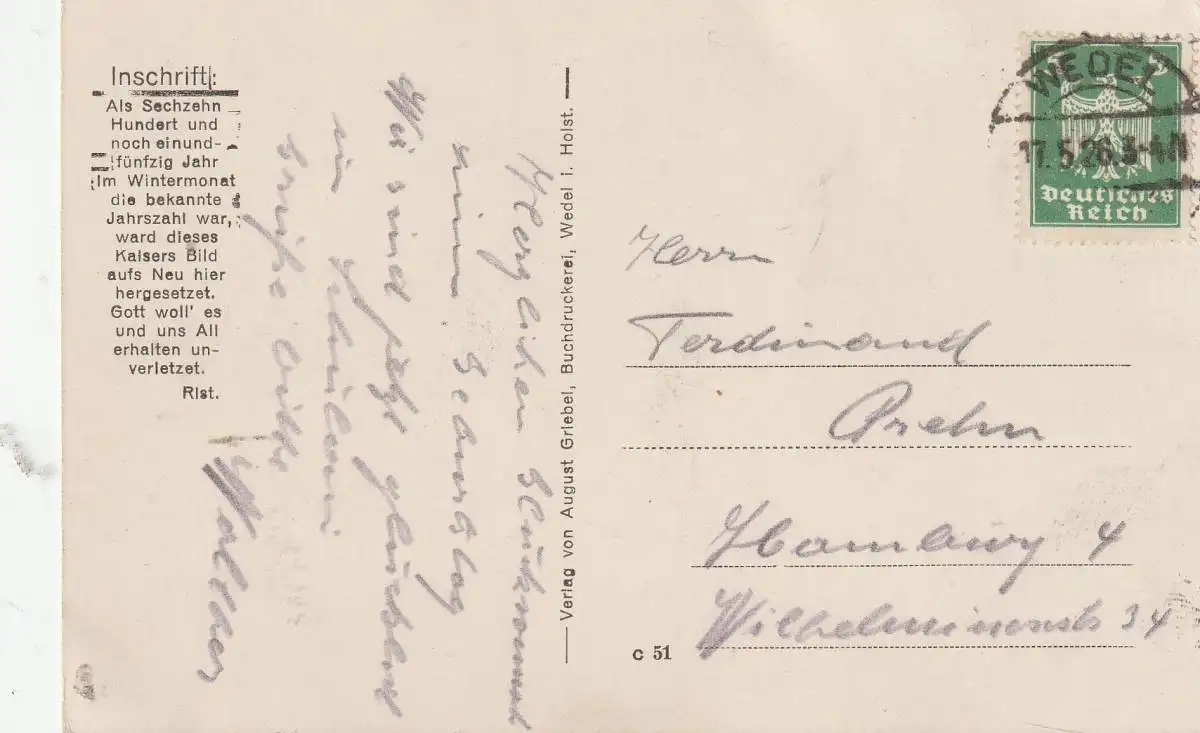 Inschrift:
Als Sechzehn
Hundert und
noch einund-
fünfzig Jahr
Im Wintermonat
die bekannte
Jahrszahl war,
ward dieses
Kaisers Bild
aufs Neu hier
hergesetzet.
Gott woll' es
und uns All
erhalten un-
verletzet.
Rist.
Herzlichen Glückwunsch
zum Geburtstag
Wir sind jetzt glücklich
in
Walther
Verlag von August Griebel, Buchdruckerei, Wedel i. Holst.
WEDEL
17.5.26.3-4N
Deutsches
Reich
Herrn
Ferdinand
Prehn
Hamburg 4
Wilhelminenstr 34
C 51